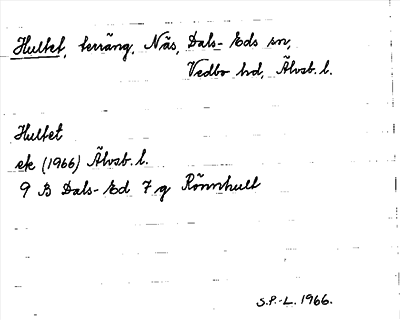 Hultet, terräng, Näs, Dals-Eds sn,
Vedbo hd, Älvsb. l.
Hultet
ek (1966) Älvsb. l.
9 B Dals-Ed 7 g Rönnhult
S.P.-L. 1966.